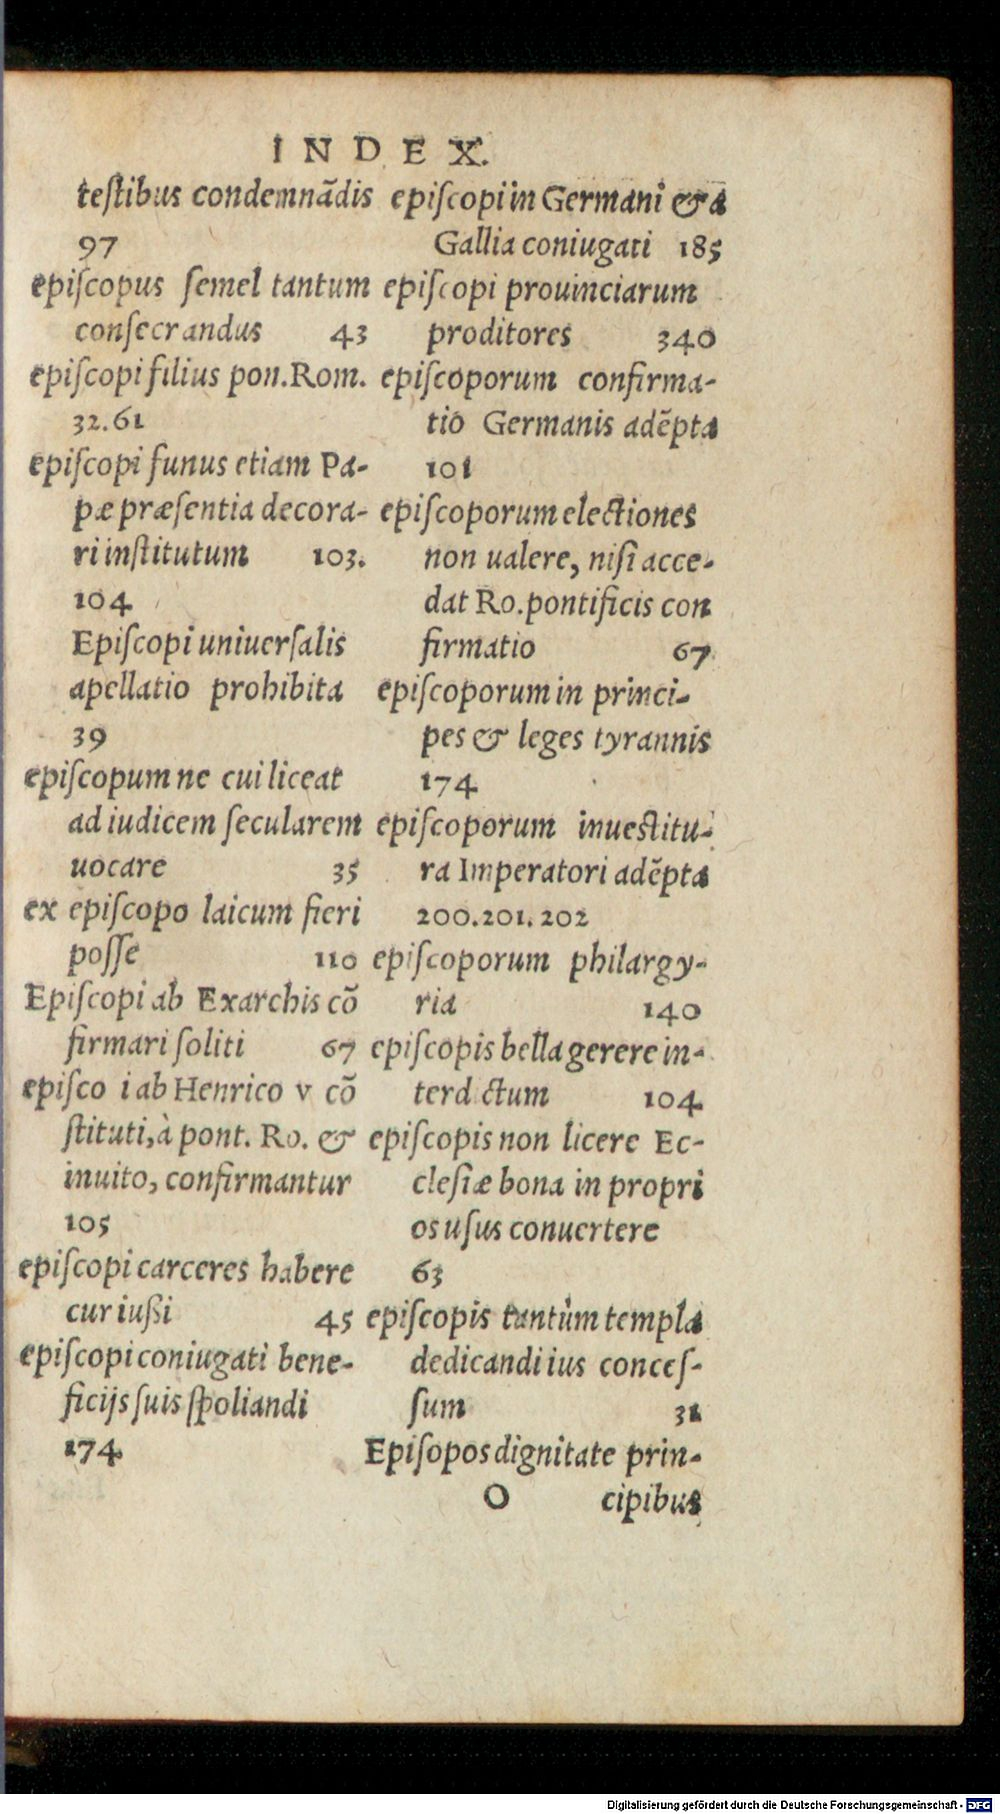 INDEX.
teſtibus condemnãdis
97
epiſcopus ſemel tantum
conſecrandus 43
epiſcopi filius pon.Rom.
32.61
epiſcopi funus etiam Pa-
pæ præſentia decora-
ri inſtitutum 103.
104
Epiſcopi uniuerſalis
apellatio prohibita
39
epiſcopum ne cui liceat
ad iudicem ſecularem
uocare 35
ex epiſcopo laicum fieri
poſſe 110
Epiſcopi ab Exarchis cõ
firmari ſoliti 67
epiſco i ab Henrico v cõ
ſtituti,à pont. Ro. &
inuito, confirmantur
105
epiſcopi carceres habere
cur iußi 45
epiſcopi coniugati bene-
ficijs ſuis ſpoliandi
174
epiſcopi in Germani & a
Gallia coniugati 185
epiſcopi prouinciarum
proditores 340
epiſcoporum confirma-
tio Germanis adẽpta
101
epiſcoporum electiones
non ualere, niſi acce-
dat Ro.pontificis con
firmatio 67
epiſcoporum in princi-
pes & leges tyrannis
174
epiſcoporum inueſtitu-
ra Imperatori adẽpta
200.201.202
epiſcoporum philargy-
ria 140
epiſcopis bella gerere in-
terd ctum 104
epiſcopis non licere Ec-
cleſiæ bona in propri
os uſus conuertere
63
epiſcopis tantùm templa
dedicandi ius conceſ-
ſum 31
Epiſopos dignitate prin-
O cipibus
Digitalisierung gefördert durch die Deutsche Forschungsgemeinschaft - DFG